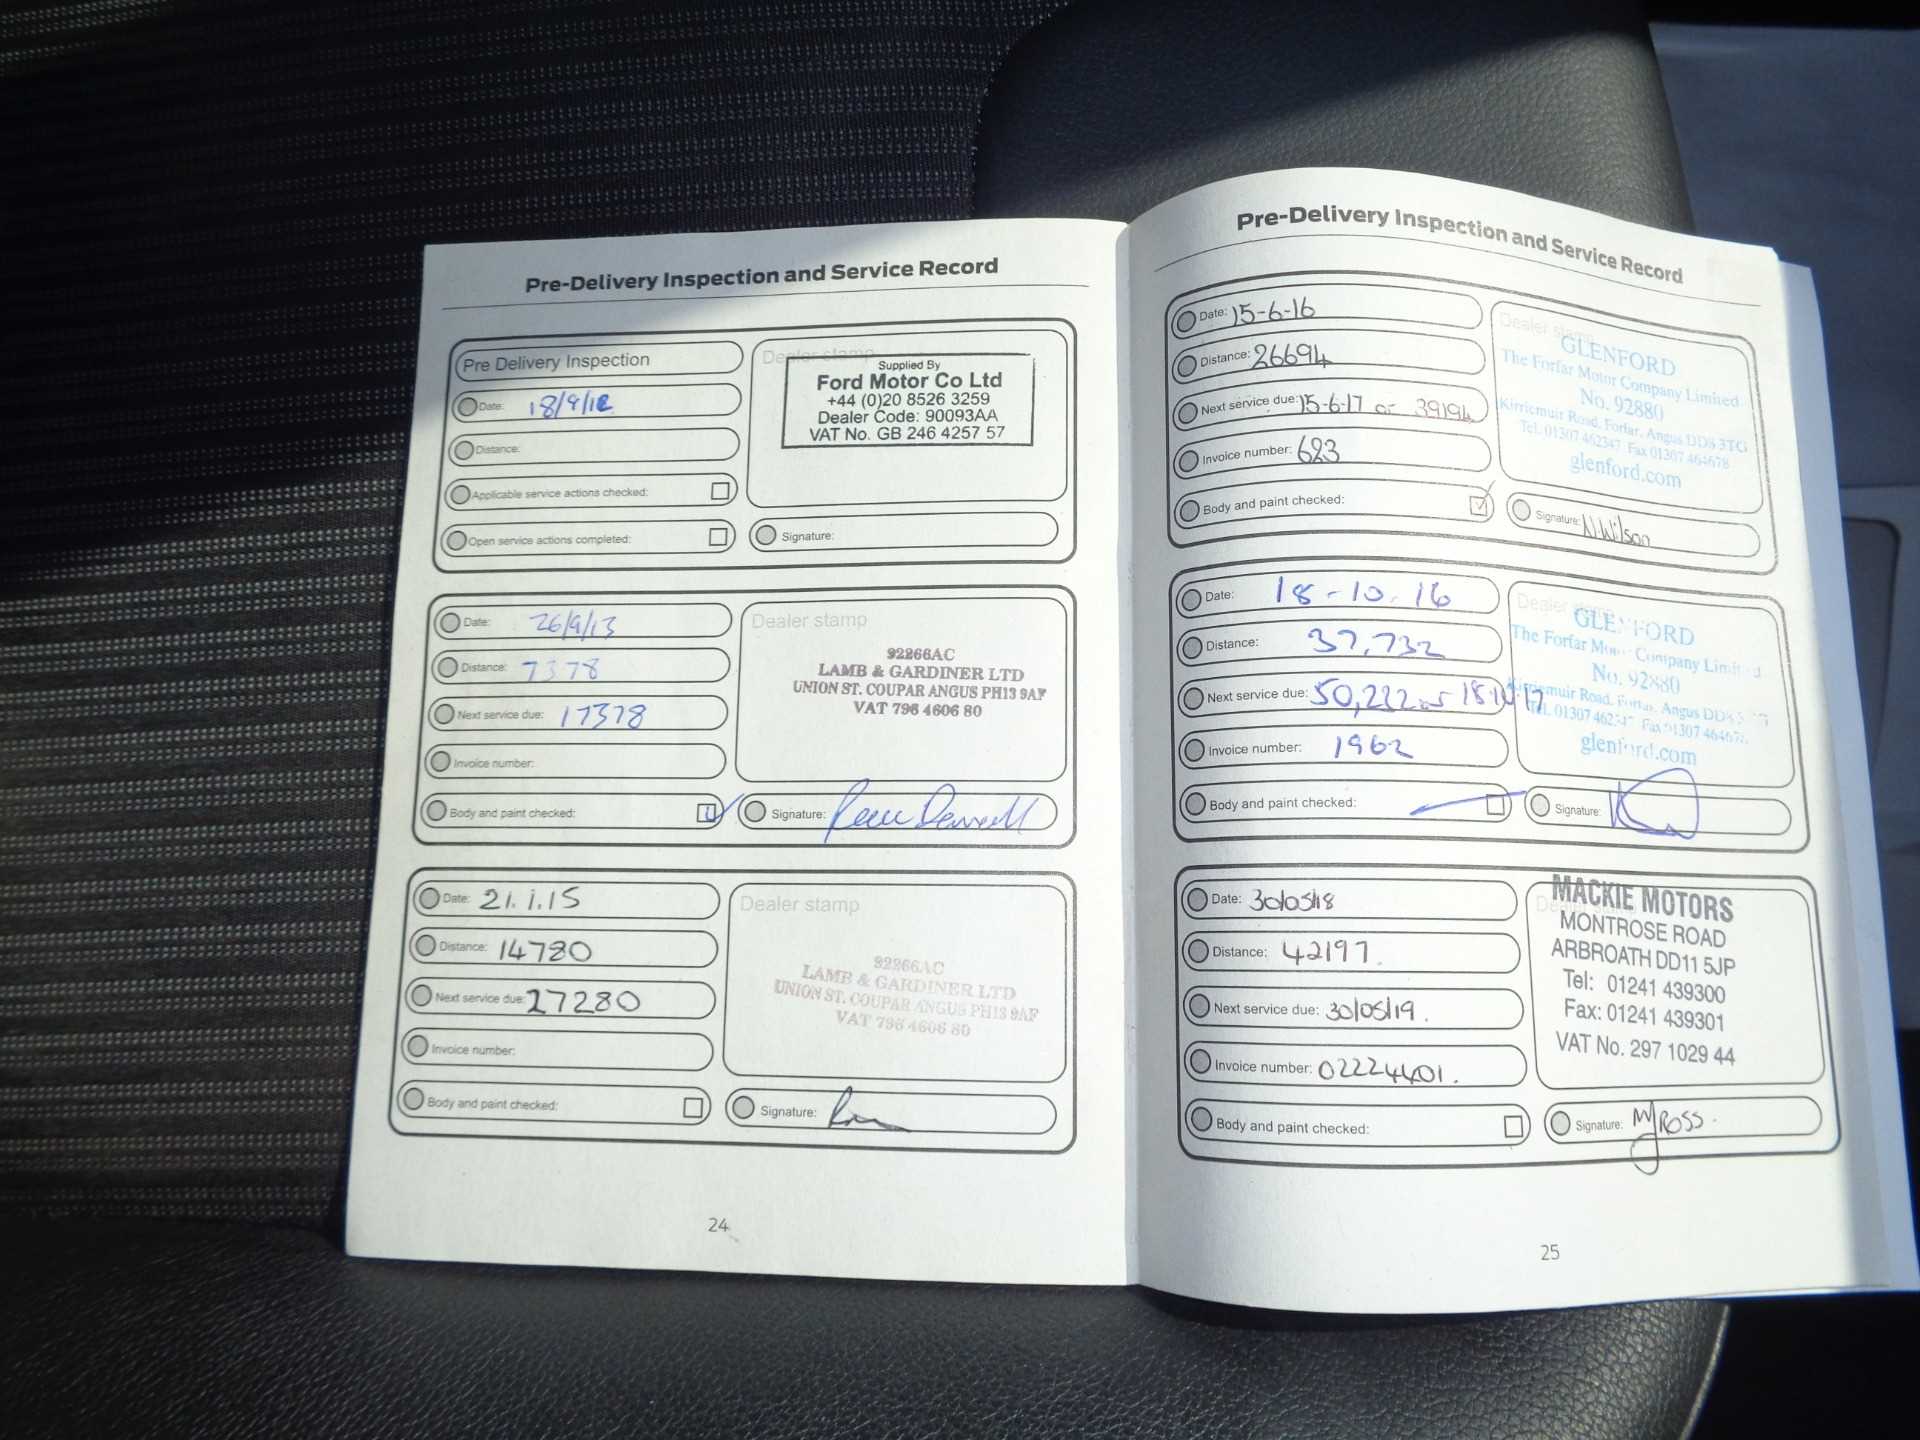 Pre-Delivery Inspection and Service Record
Pre Delivery Inspection
Date: 18/9/12
Distance:
Applicable service actions checked:
Open service actions completed:
Dealer stamp
Supplied By
Ford Motor Co Ltd
+44 (0)20 8526 3259
Dealer Code: 90093AA
VAT No. GB 246 4257 57
Signature:
Date: 26/9/13
Distance: 7378
Next service due: 17378
Invoice number:
Body and paint checked:
Dealer stamp
92266AC
LAMB & GARDINER LTD
UNION ST. COUPAR ANGUS PH13 9AF
VAT 796 4606 80
Signature:
Date: 21.1.15
Distance: 14780
Next service due: 27280
Invoice number:
Body and paint checked:
Dealer stamp
92266AC
LAMB & GARDINER LTD
UNION ST. COUPAR ANGUS PH13 9AF
VAT 796 4606 80
Signature:
24
Pre-Delivery Inspection and Service Record
Date: 15-6-16
Distance: 26694
Next service due: 15-6-17 or 39194
Invoice number: 623
Body and paint checked:
Dealer stamp
GLENFORD
The Forfar Motor Company Limited
No. 92880
Kirriemuir Road, Forfar, Angus DD8 3TG
Tel: 01307 462347 Fax 01307 464678
glenford.com
Signature: N.Wilson
Date: 18-10.16
Distance: 37,732
Next service due: 50,232 or 18.10.17
Invoice number: 1962
Body and paint checked:
Dealer stamp
GLENFORD
The Forfar Motor Company Limited
No. 92880
Kirriemuir Road, Forfar, Angus DD8 3TG
Tel: 01307 462347 Fax 01307 464678
glenford.com
Signature:
Date: 30/05/18
Distance: 42197.
Next service due: 30/05/19.
Invoice number: 02224401.
Body and paint checked:
Dealer stamp
MACKIE MOTORS
MONTROSE ROAD
ARBROATH DD11 5JP
Tel: 01241 439300
Fax: 01241 439301
VAT No. 297 1029 44
Signature: MJ ROSS.
25